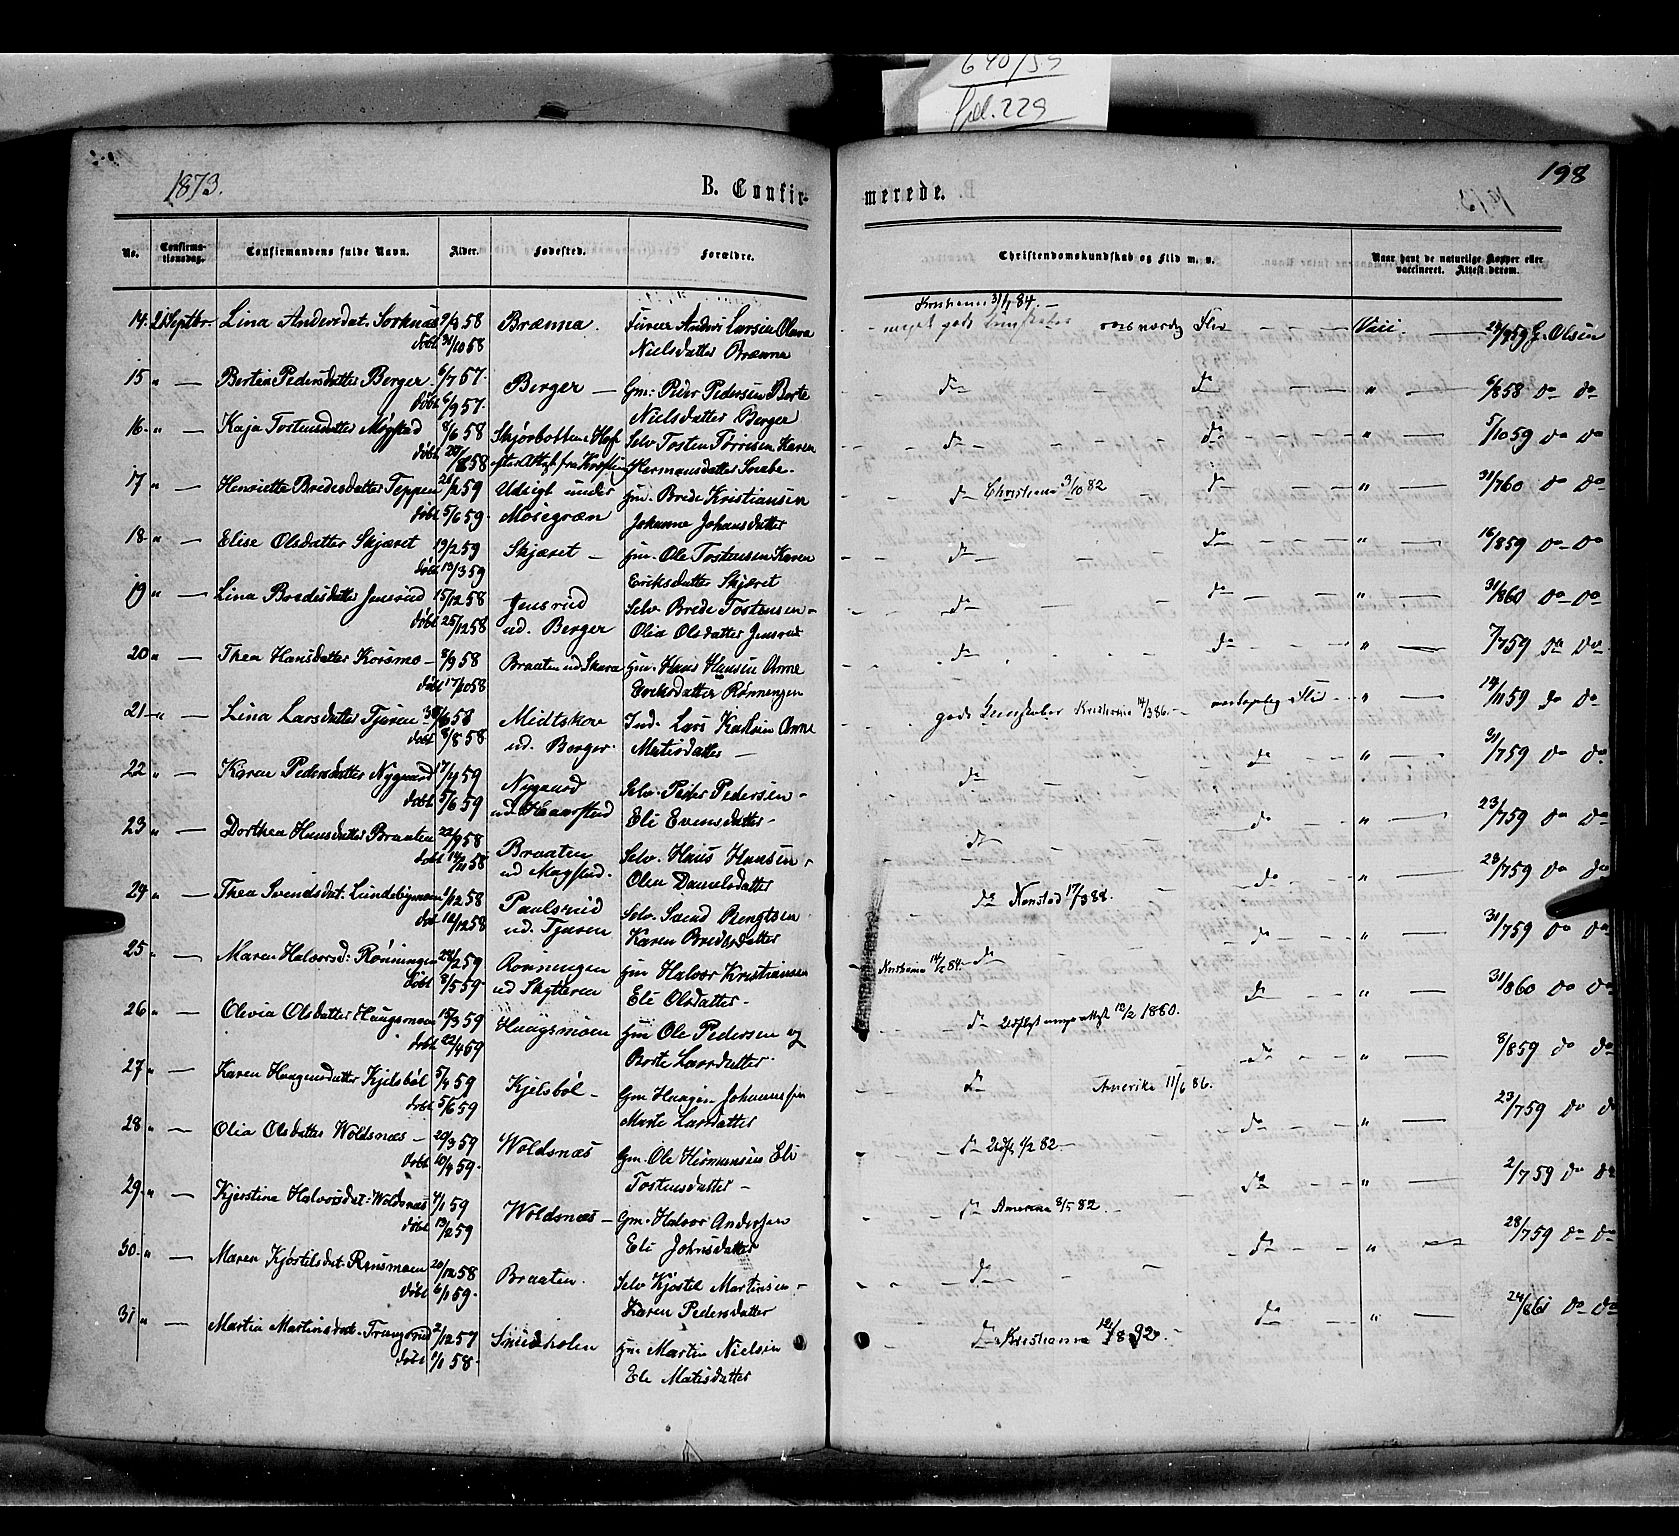 640/59
fol. 229
198
1873.
B. Confir-
merede.
No.
Confirma-
tionsdag.
Confirmandens fulde Navn.
Alder.
Fødested.
Forældre.
Christendomskundskab og Flid m. v.
Naar havt de naturlige Kopper eller
vaccineret. Attest derom.
14. 21 Septbr. Lina Andersdat. Sorknæs 9/3 58 Brænna. Anders Larsen Olava Kristiania 31/1 84.
døbt 31/10 58 Nielsdatter Brænna meget gode Kundskaber Flid Vacc. 59 G. Olsen
15 " Bertea Pedersdatter Berger 6/7 57. Berger Gm. Peder Pedersen Berte do do " 6/8 58 do do
døbt 6/9 57. Nielsdatter Berger
16 " Kaja Tostensdatter Mogstad 8/6 58 Selv. Tosten Karen do do " 5/10 59 do do
døbt 58 Hermansdatter
17 " Henriette Bredesdatter Teppen 59 Udsigt under Gm. Brede Kristiansen do Christiania 3/10 82 do " 31/7 60 do do
døbt 5/6 59. Mosegræn Johanne Johansdatter
18 " Elise Olsdatter Skjæret 19/2 59 Skjæret Gm. Ole Tostensen Karen do do " 16/8 59 do do
døbt 13/3 59 Eriksdatter Skjæret
19 " Lina Bredesdatter Jensrud 15/12 58 Jensrud Selv. Brede Tostensen do do " 31/8 60 do do
døbt 25/12 58 ud. Berger Olia Olsdatter Jensrud
20 " Thea Hansdatter Korsmo 8/9 58 Braaten ud Skara Gm. Hans Hansen Anne do do " 7/7 59 do do
døbt 17/10 58 Eriksdatter Rønningen
21 " Lina Larsdatter Tjuren 58 Midtskov Ind. Lars Anne gode Kundskaber Kristiania 14/3 86. Flid " 14/11 59 do do
døbt 8/8 58 ud. Berger. Matisdatter
22 " Karen Pedersdatter Nygaard 17/4 59 Nygaard Selv. Peder Pedersen do do " 31/7 59 do do
døbt 5/6 59 ud. Haarstad Eli Evensdatter
23 " Dorthea Hansdatter Braaten 22/9 58 Braaten Selv. Hans Hansen do do " 23/7 59 do do
døbt 58 ud Magstad. Olea Danielsdatter
24 " Thea Svendsdat. Lundebymoen 1/12 58 Paulsrud Selv. Svend Bengtsen do 17/3 88. do " 23/7 59 do do
døbt 12/12 58 ud. Tjuren Karen Bredesdatter
25 " Maren Halvorsd: Rønningen 28/2 59 Rønningen Gm Halvor Kristiansen Kristiania 84. do do " 31/7 59 do do
døbt 8/5 59. ud Skytteren Eli Olsdatter
26 " Olevia Olsdatter Haugsmoen 15/3 59 Haugsmoen Gm Ole Pedersen og do 12/2 1880. do " 31/8 60 do do
døbt 22/4 59 Berte Larsdatter
27 " Karen Haagensdatter Kjelsbøl 5/4 59 Kjelsbøl Gm Haagen Johannessen do Amerika 11/6 86. do " 8/8 59 do do
døbt 5/6 59 Marte Larsdatter
28 " Olia Olsdatter Woldsnæs 20/3 59 Woldsnæs Gm. Ole Hermansen Eli do Udfl. 6/2 82 do " 23/7 59 do do
døbt 10/4 59. Tostensdatter
29 " Kjerstina Halvorsdat: Woldsnæs 4/1 59 Woldsnæs Gm. Halvor Andersen do Amerika 8/5 82. do " 2/7 59 do do
døbt 13/2 59 Eli Johnsdatter
30 " Maren Kjøstelsdat. Rensmoen 20/12 58 Braaten. Selv Kjøstel Martinsen do do " 28/7 59 do do
døbt 6/1 59. Karen Pedersdatter
31 " Martia Martinsdat. 2/12 57 Gm Martin Nielsen do Kristiania 12/8 92. do " 24/8 61 do do
døbt 1/1 58. Eli Matisdatter